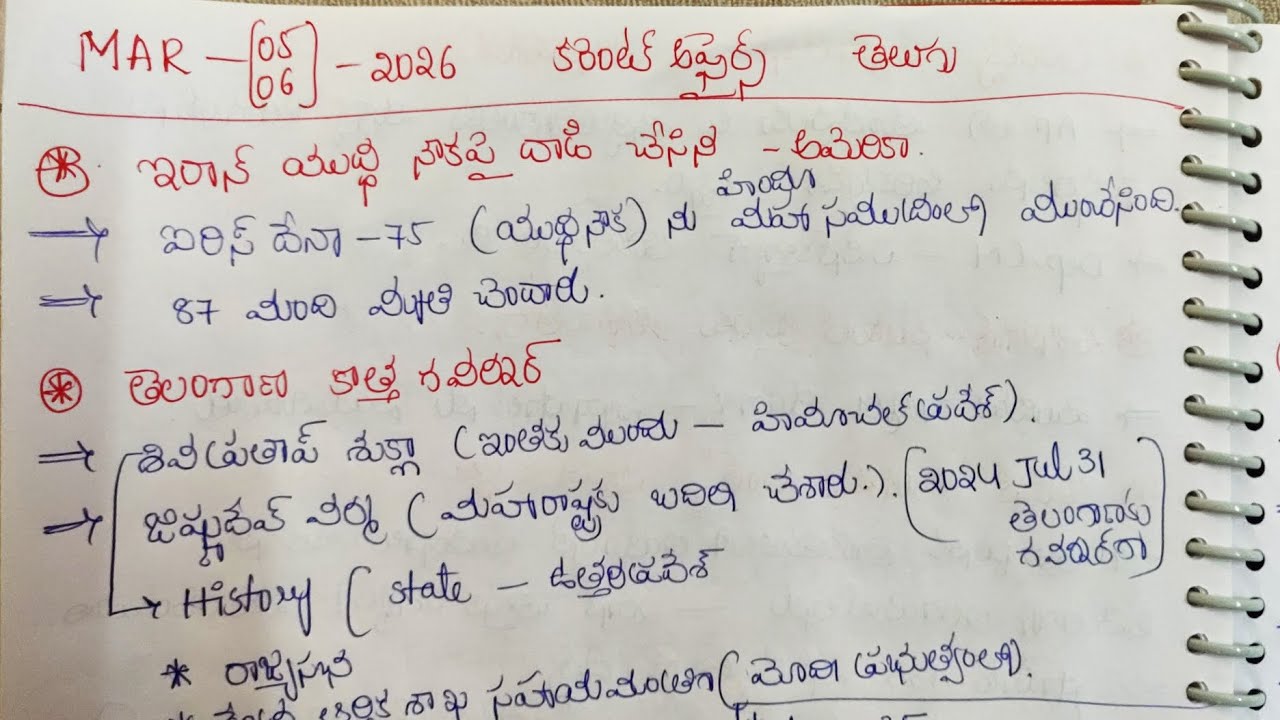 MAR – [05 06] – 2026 కరెంట్ అఫైర్స్ తెలుగు
* ఇరాన్ యుద్ధ నౌకపై దాడి చేసిన – అమెరికా.
→ ఐరిస్ దేనా – 75 (యుద్ధనౌక) ను హిందూ మహా సముద్రంలో ముంచేసింది.
→ 87 మంది మృతి చెందారు.
* తెలంగాణ కొత్త గవర్నర్
→ శివప్రతాప్ శుక్లా (ఇంతకు ముందు – హిమాచల్ ప్రదేశ్).
→ జిష్ణుదేవ్ వర్మ (మహారాష్ట్రకు బదిలీ చేశారు.). (2024 Jul 31
తెలంగాణకు
గవర్నర్‌గా)
→ History ( state – ఉత్తరప్రదేశ్
* రాజ్యసభ
ఆర్థిక శాఖ సహాయమంత్రిగా (మోదీ ప్రభుత్వంలో).